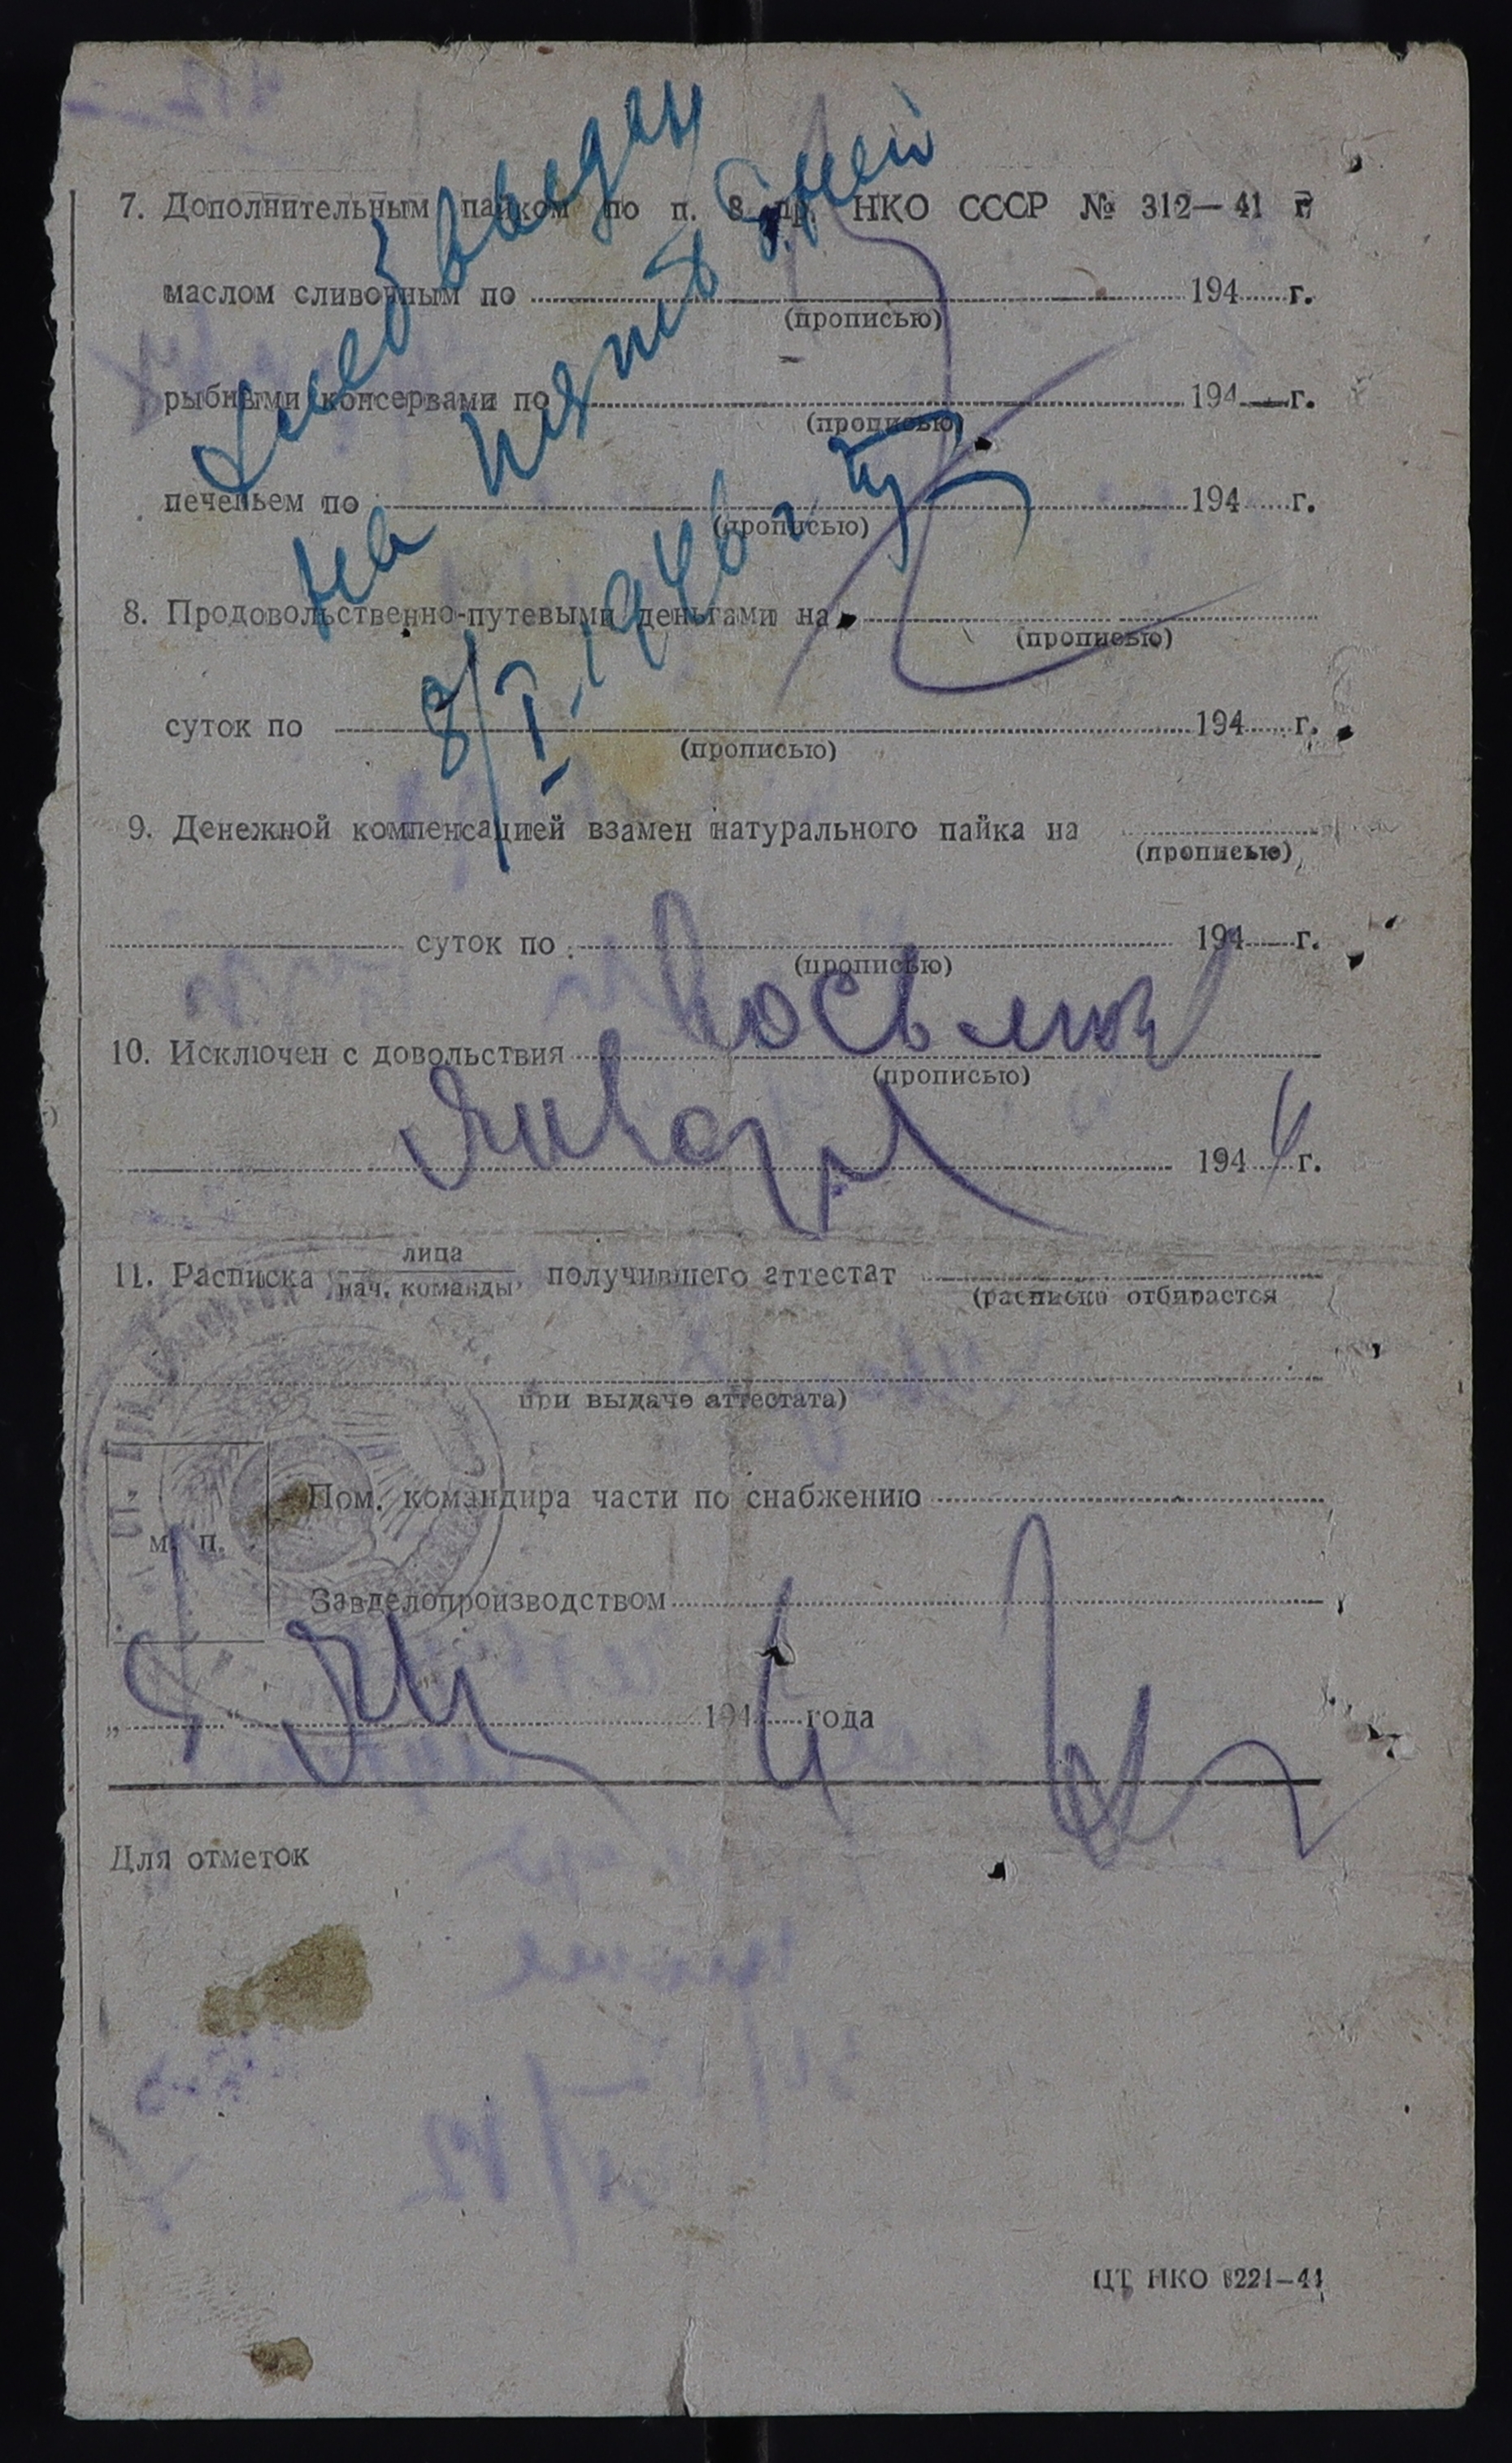 7. Дополнительным пайком по п. 8 пр. НКО СССР № 312—41 г.
маслом сливочным по 194 г.
(прописью)
рыбными консервами по 194 г.
(прописью)
печеньем по 194 г.
(прописью)
8. Продовольственно-путевыми деньгами на
(прописью)
суток по 194 г.
(прописью)
Хлеб выдан
на пять дней
8/I-1946 г.
9. Денежной компенсацией взамен натурального пайка на
(прописью)
суток по 194 г.
(прописью)
10. Исключен с довольствия Восьмого
(прописью)
января 1946 г.
11. Расписка лица
нач. команды, получившего аттестат
(расписка отбирается
при выдаче аттестата)
Пом. командира части по снабжению
м. п.
Завделопроизводством
„ “ 194 года
Для отметок
ЦТ НКО 8221—44